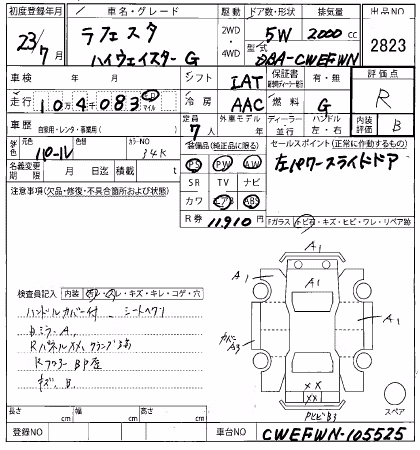 初度登録年月 車名・グレード 駆動 ドア数・形状 排気量 出品NO
23年 ラフェスタ 2WD 5W 2000cc
7月 ハイウェイスターG 4WD 型式 DBA-CWEFWN 2823
車検 年 月 シフト IAT 保証書 有・無 評価点
走行 10万4千083 km マイル 冷房 AAC 燃料 G R
車歴 自家用・レンタ・事業用( ) 定員 7人 外車モデル 年 ディーラー・並行 ハンドル 左・右 内装評価 B
元色 色替 カラーNO 装備品(純正品に限る) セールスポイント(正常に作動するもの)
パール 34K PS PW AW 左パワースライドドア
名義変更期限 月 日迄 積載 t SR TV ナビ
注意事項(欠品・修復・不具合箇所および状態) カワ エアB ABS
R券 11,910円 Fガラス トビ石・キズ・ヒビ・ワレ・リペア跡
A1
A1
A1
A1
検査員記入 内装 キレ・コゲ・穴
ハンドルカバー付 シートヘタリ
ミラーA.
Rフロアー
キズ. B.
A3
××
××
B3
スペア
長さ cm 幅 cm 高さ cm
登録NO 車台NO CWEFWN-105525